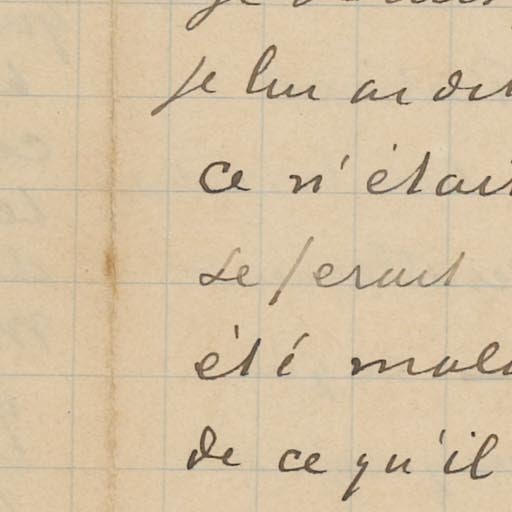 je lui ai dit
ce n'était
se ferait
été mala
de ce qu'il